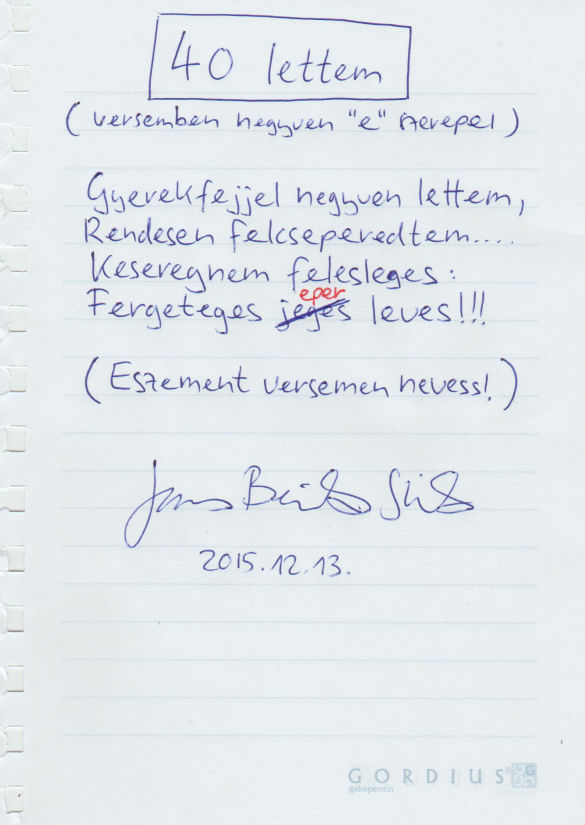 40 lettem
(versemben negyven "e" szerepel)
Gyerekfejjel negyven lettem,
Rendesen felcseperedtem....
Keseregnem felesleges:
eper
Fergeteges jeges leves!!!
(Eszement versemen nevess!)
2015.12.13.
GORDIUS®
gabapentin